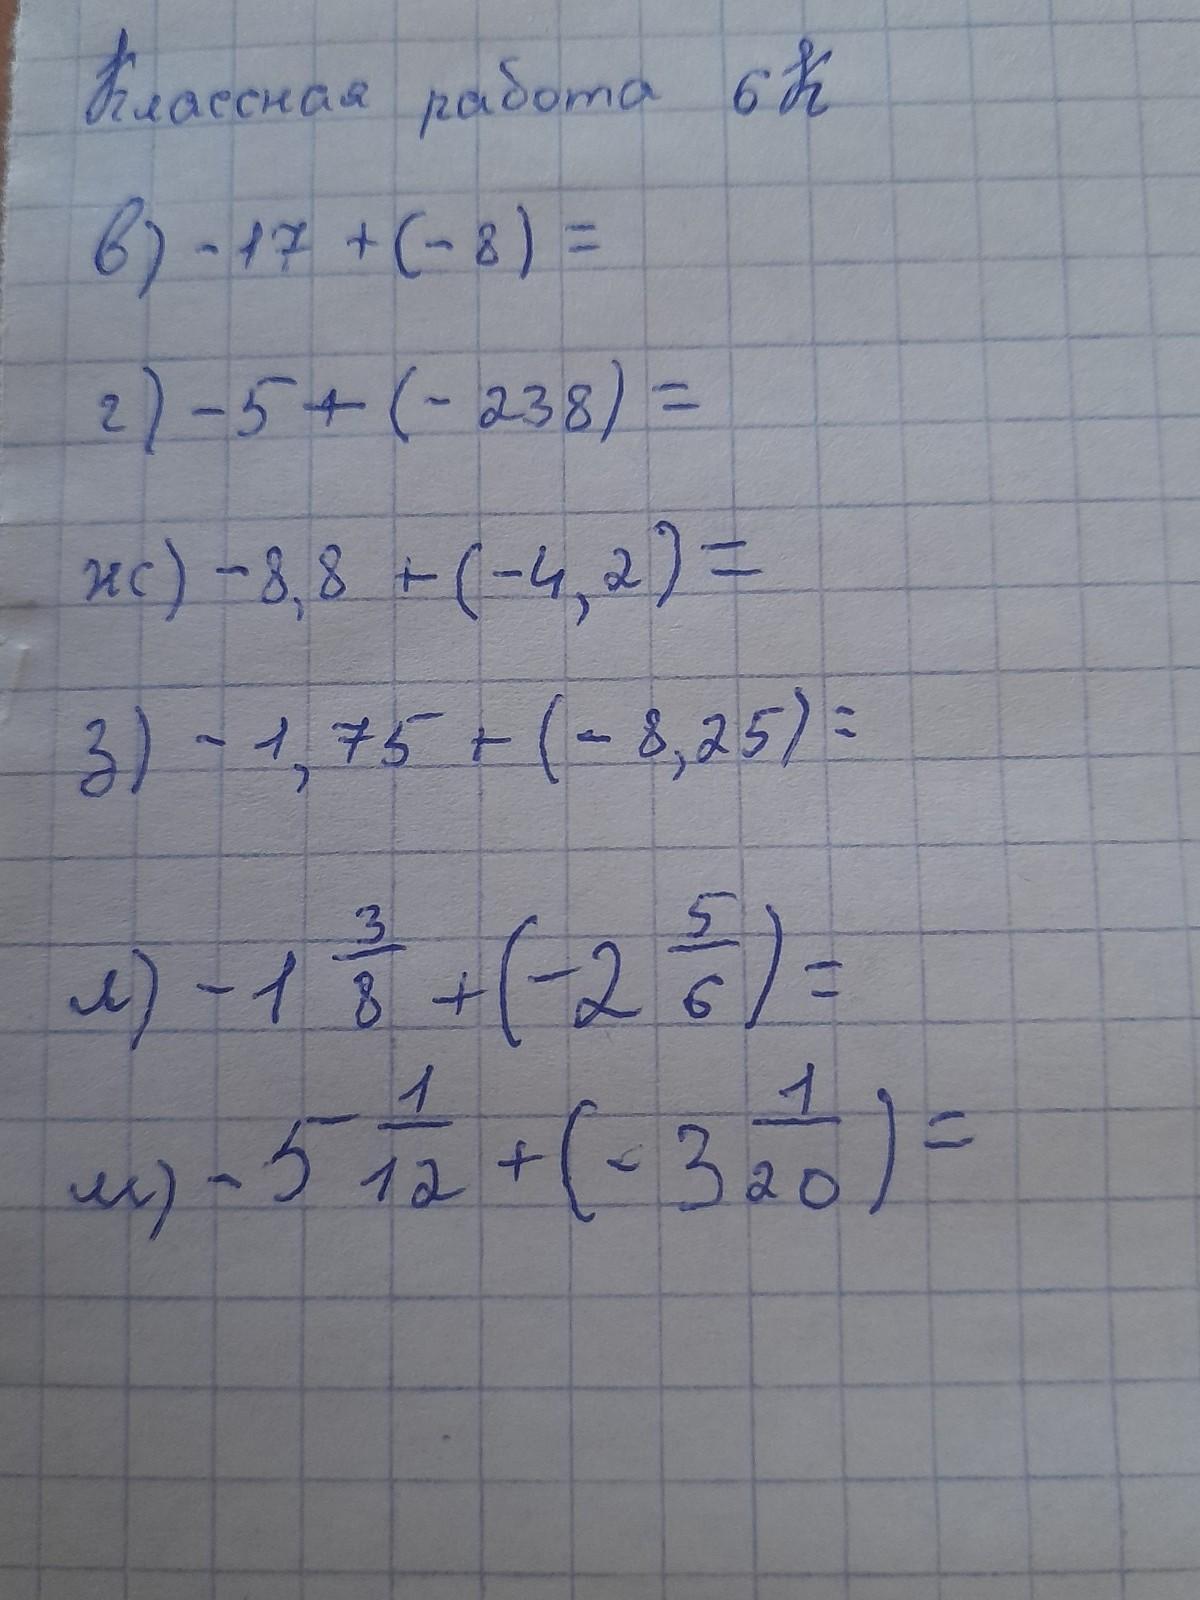 Классная работа 6К
в) -17 + (-8) =
г) -5 + (-238) =
ж) -8,8 + (-4,2) =
з) -1,75 + (-8,25) =
л) -1 3/8 + (-2 5/6) =
м) -5 1/12 + (-3 1/20) =